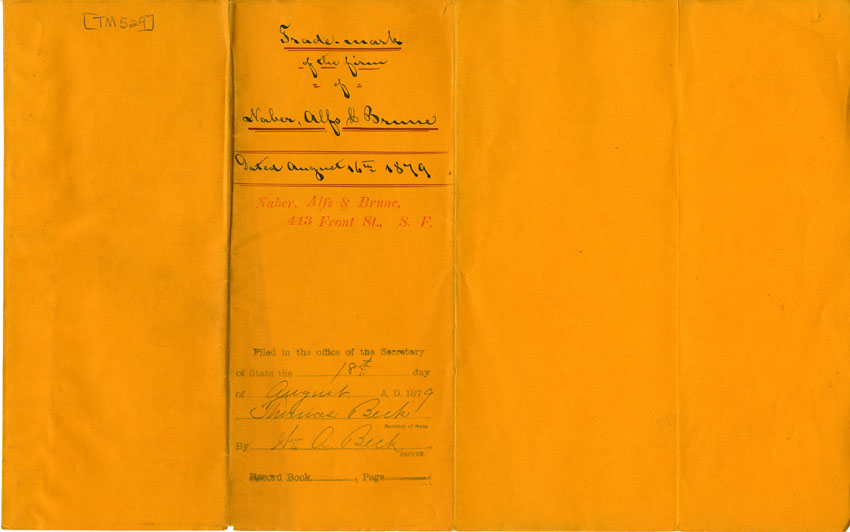 [TM529]
Trade-mark
of the firm
of
Naber, Alfs & Brune
Dated August 16th 1879
Naber, Alfs & Brune,
413 Front St., S. F.
Filed in the office of the Secretary
of State the 18th day
of August A. D. 1879
Thomas Beck
Secretary of State.
By Wm A. Beck
DEPUTY.
Record Book Page